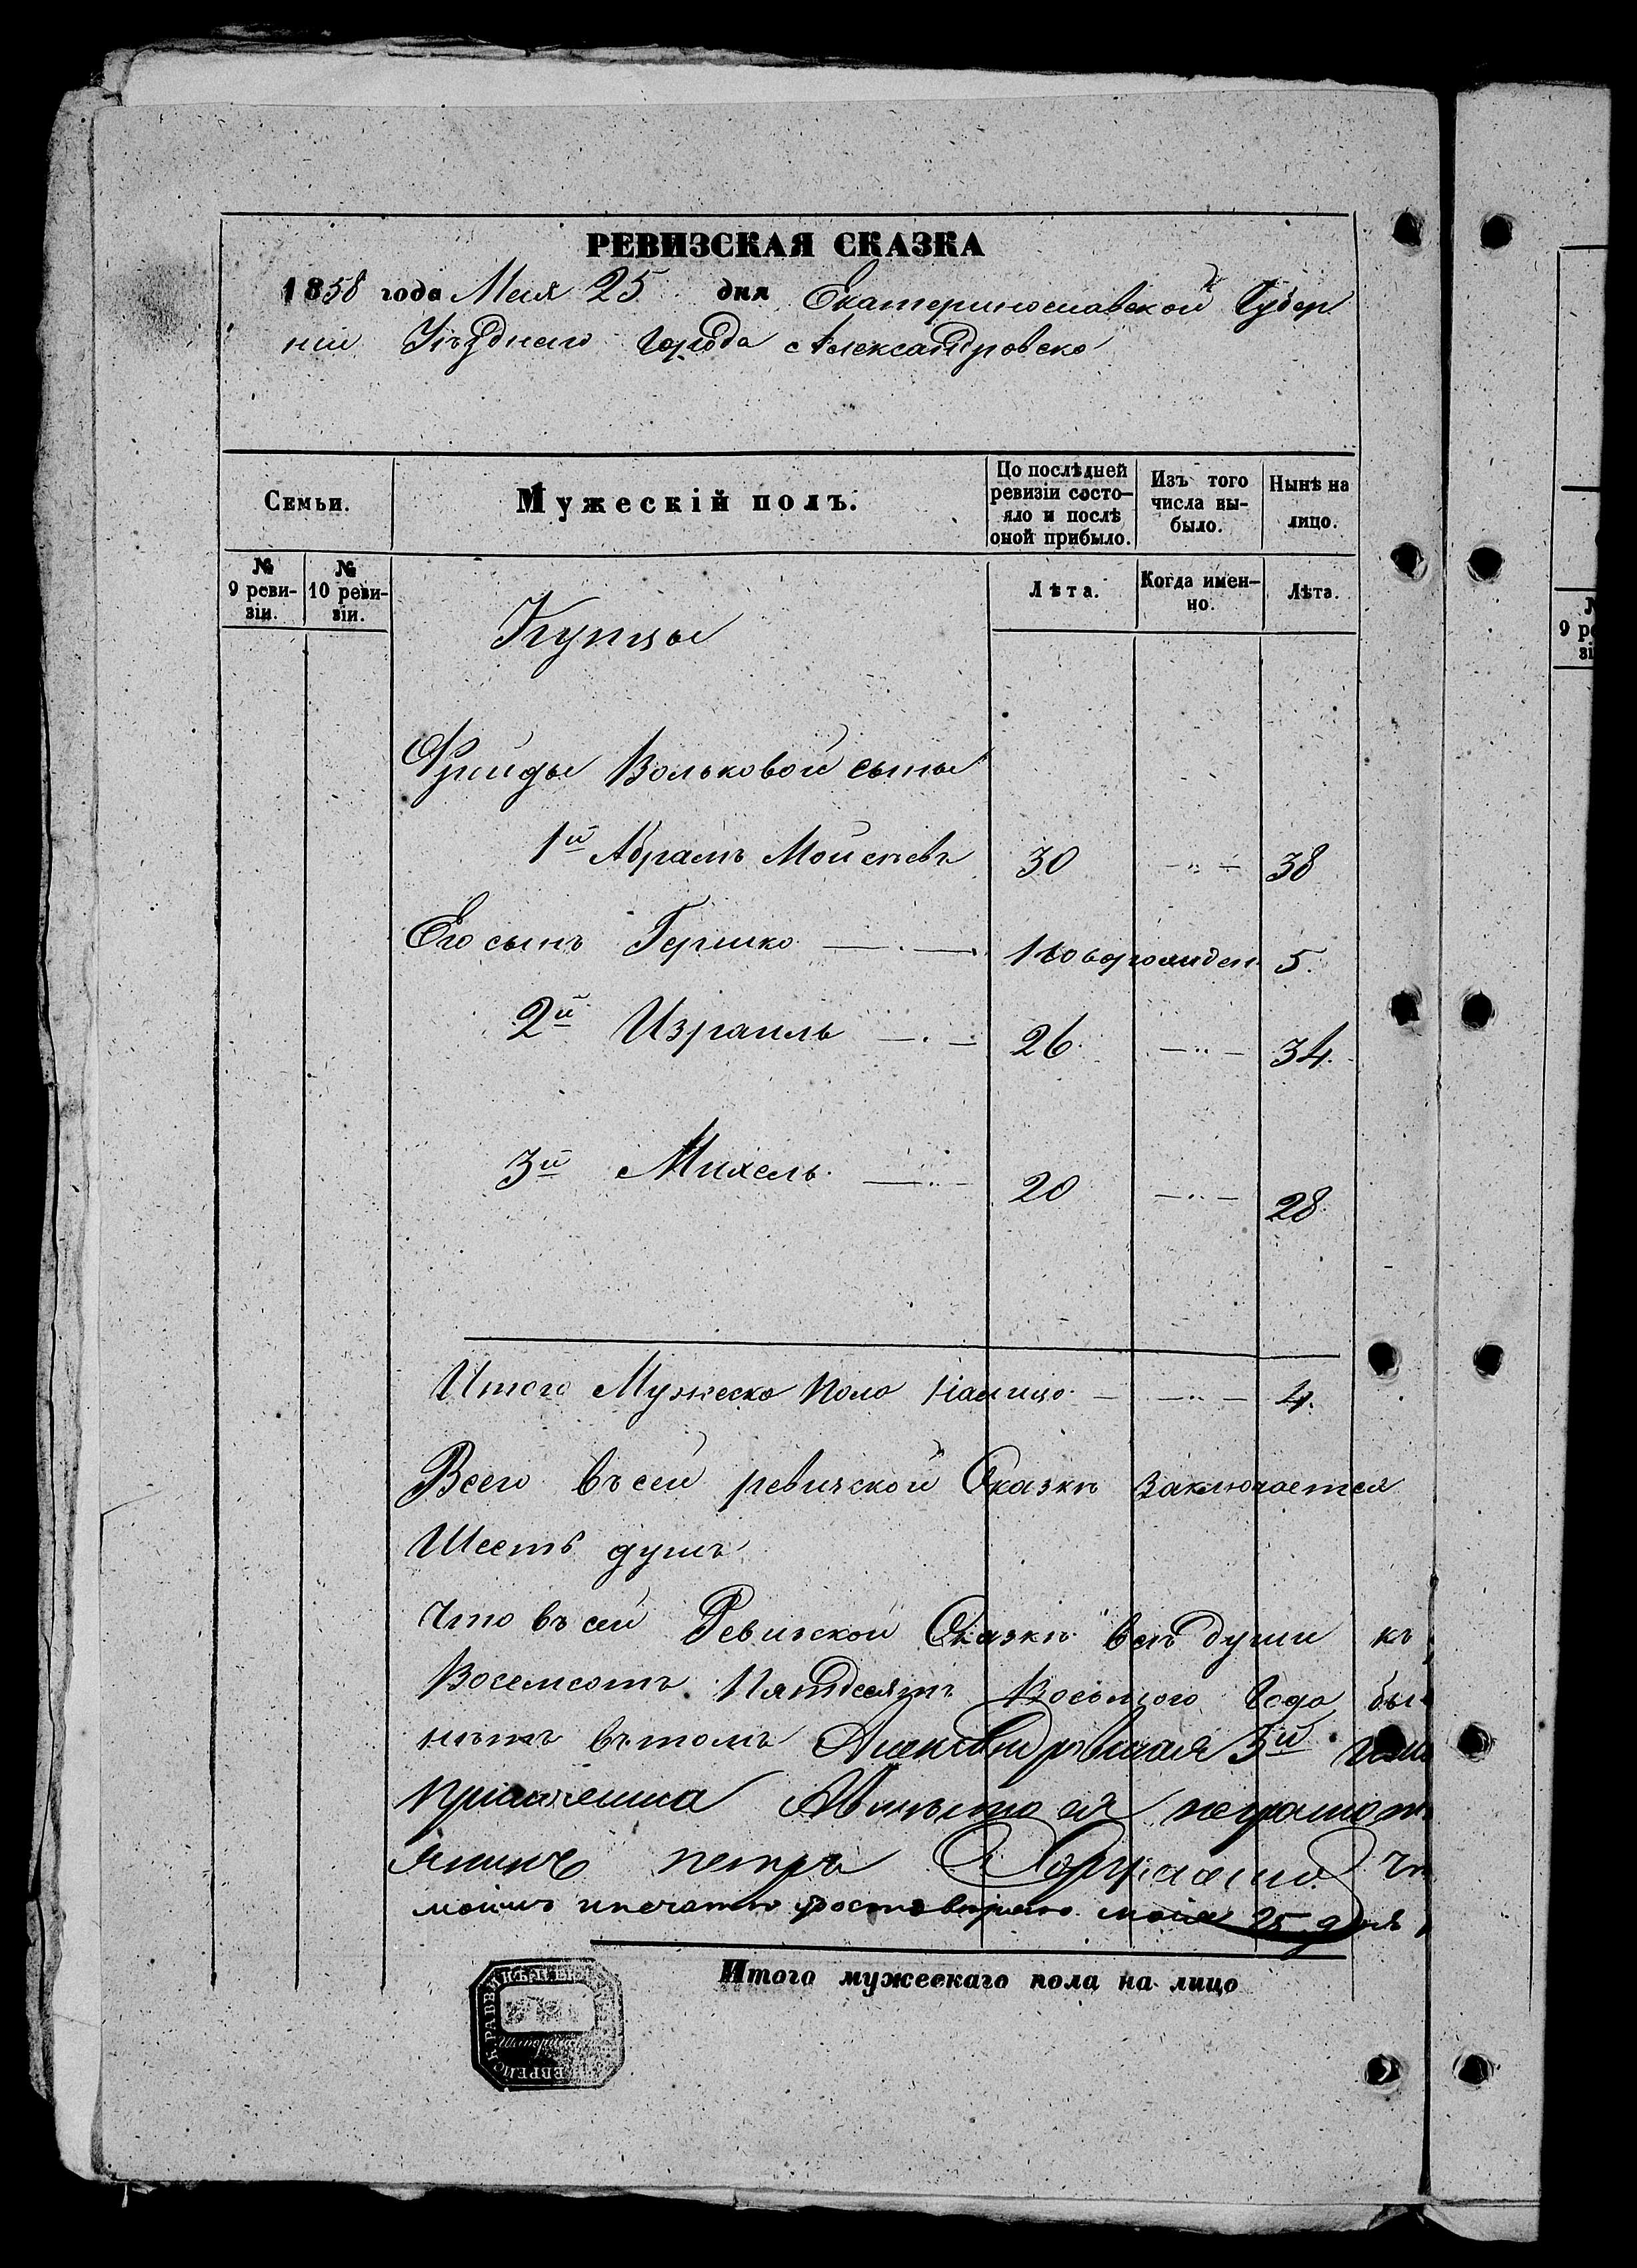 РЕВИЗСКАЯ СКАЗКА
1858 года Мая 25 дня Екатеринославской Губер
нии Уѣзднаго города Александровска
Семьи.
Мужескій полъ.
По послѣдней ревизіи состо-
яло и послѣ оной прибыло.
Изъ того числа вы-
было.
Нынѣ на лицо.
№ 9 реви-
зіи.
№ 10 реви-
зіи.
Лѣта.
Когда имен-
но.
Лѣта.
№
9 ре
зі
Купцы
Фрейды Вольковой сыны
1й Абрамъ Мойсѣевъ 30 —„— 38
Его сынъ Гершко — . — новорожден 5.
2й Израиль — . — 26 —„— 34.
3й Михель — . — 20 —„— 28
Итого Мужеска Пола налицо — —„— 4.
Всего въ сей ревизской Сказкѣ заключается
Шесть душъ
Что въ сей Ревизской Сказкѣ всѣ души къ
Восемсотъ Пятдесятъ Восьмого Года бы
нѣтъ въ томъ 3й
неграмот
петръ
моимъ и печатью удостовѣряю мая 25 дня
Итого мужескаго пола на лицо
РАВВИНЪ
ЕВРЕЙСК